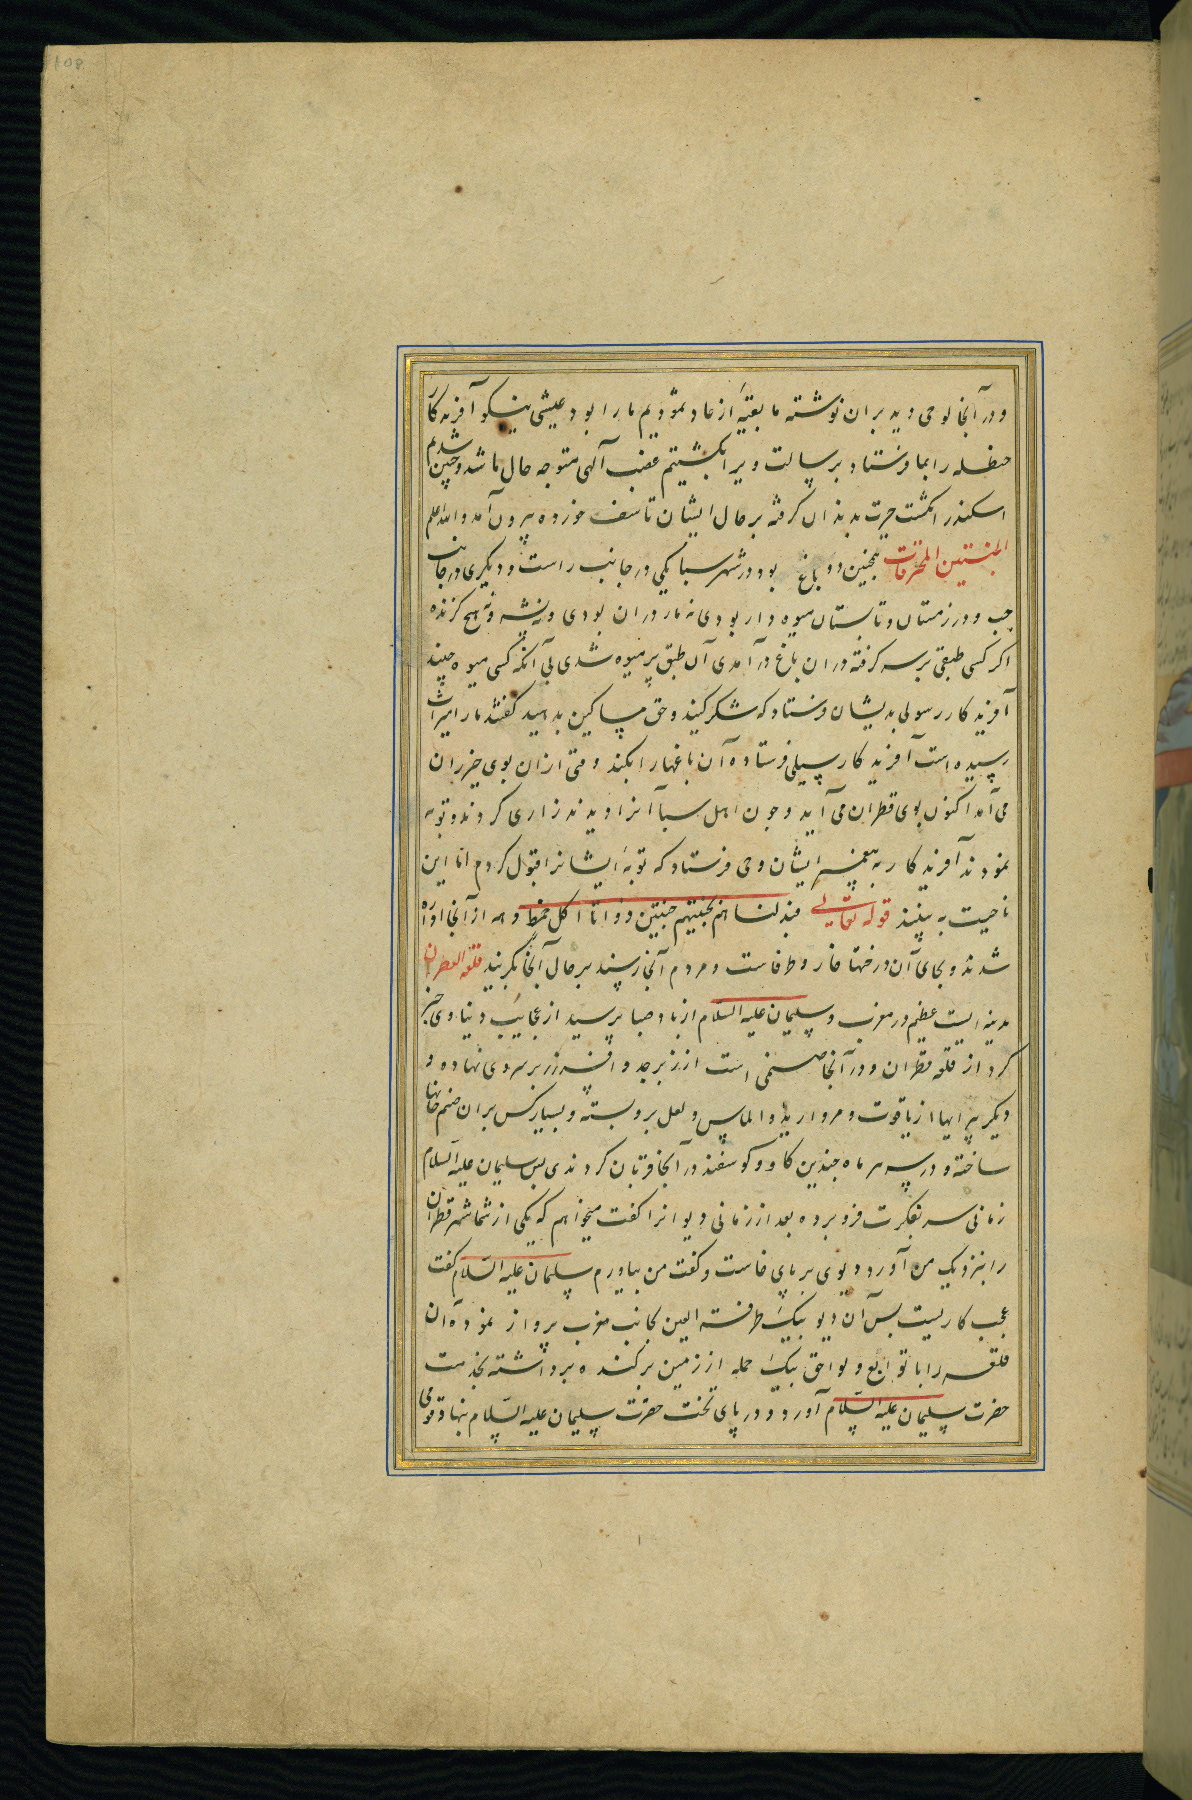 108
و در آنجا لوحی دید بران نوشته ما بقیۀ از عاد بمودیم ما را بود عیشی نیکو آفریدکار
حنظله را بما فرستاد برسالت ویرا بکشتیم غضب آلهی متوجه حال ما شد و چنین شدیم
اسکندر انکشت حیرت بدندان کرفته بر حال ایشان تاسف خورده بیرون آمد والله اعلم
الجنتین المحرقات بجنین دو باغ بود در شهر سبا یکی در جانب راست و دیکری در جانب
چپ و در زمستان و تابستان میوه دار بودی نه مار دران بودی و نه پشه و نه هیچ کزنده
اکر کسی طبقی بر سر کرفته دران باغ در آمدی آن طبق پر میوه شدی بی آنکه کسی میوه چیند
آفریدکار رسولی بدیشان فرستاد که شکر کنید و حق مساکین بدهید کفتند ما را میراث
رسیده است آفریدکار سیلی فرستاد و آن باغها را بکند وقتی ازان بوی خیزران
می آمد اکنون بوی قطران می آید و چون اهل سبا آنرا دیدند زاری کردند و توبه
نمودند آفریدکار به پیغمبر ایشان وحی فرستاد که توبۀ ایشانرا قبول کردم اما این
ناحیت به بینند قوله تعالی فبدلناهم بجنتیهم جنتین ذواتا اکل خمط و همه از آنجا آواره
شدند و بجای آن درختها خار و طرفاست و مردم آنجا رسند بر حال آنجا بکریند قلعة القطران
مدینه ایست عظیم در مغرب و سلیمان علیه السلام از باد صبا پرسید از عجایب دنیا وی خبر
کرد از قلعه قطران و در آنجا صنمی است از زبرجد و افسر زر بر سر وی نهاده و
دیکر پیرایها از یاقوت و مروارید و الماس و لعل بروبسته و بسیار کس بران صنم خانها
ساخته و در سر هر ماه چندین کاو و کوسفند در آنجا قربان کردندی پس سلیمان علیه السلام
زمانی سر بفکرت فرو برده بعد از زمانی دیوانرا کفت میخواهم که یکی از شما شهر قطران
را بنزدیک من آورد دیوی بر پای خاست و کفت من بیاورم سلیمان علیه السلام کفت
عجب کاریست پس آن دیو بیک طرفة العین بجانب مغرب پرواز نموده آن
قلعه را با توابع و لواحق بیک حمله از زمین برکنده برداشته بخدمت
حضرت سلیمان علیه السلام آورد و در پای تخت حضرت سلیمان علیه السلام بنهاد قومی